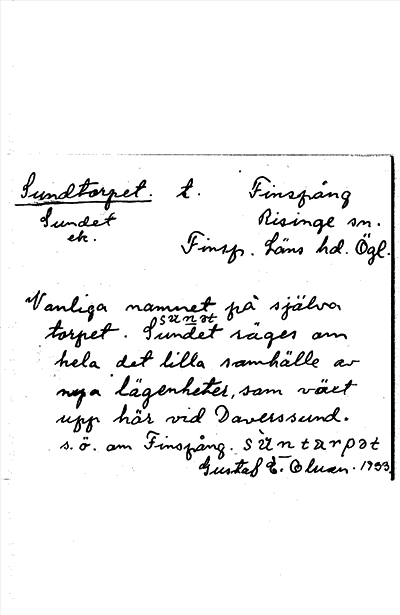 Sundtorpet. t. Finspång
Sundet Risinge sn.
ek. Finsp. Läns hd. Ögl.
Vanliga namnet på själva
torpet. Sundet säges om
hela det lilla samhälle av
nya lägenheter, som växt
upp här vid Daverssund.
s. ö. om Finspång.
Gustaf E. 1933